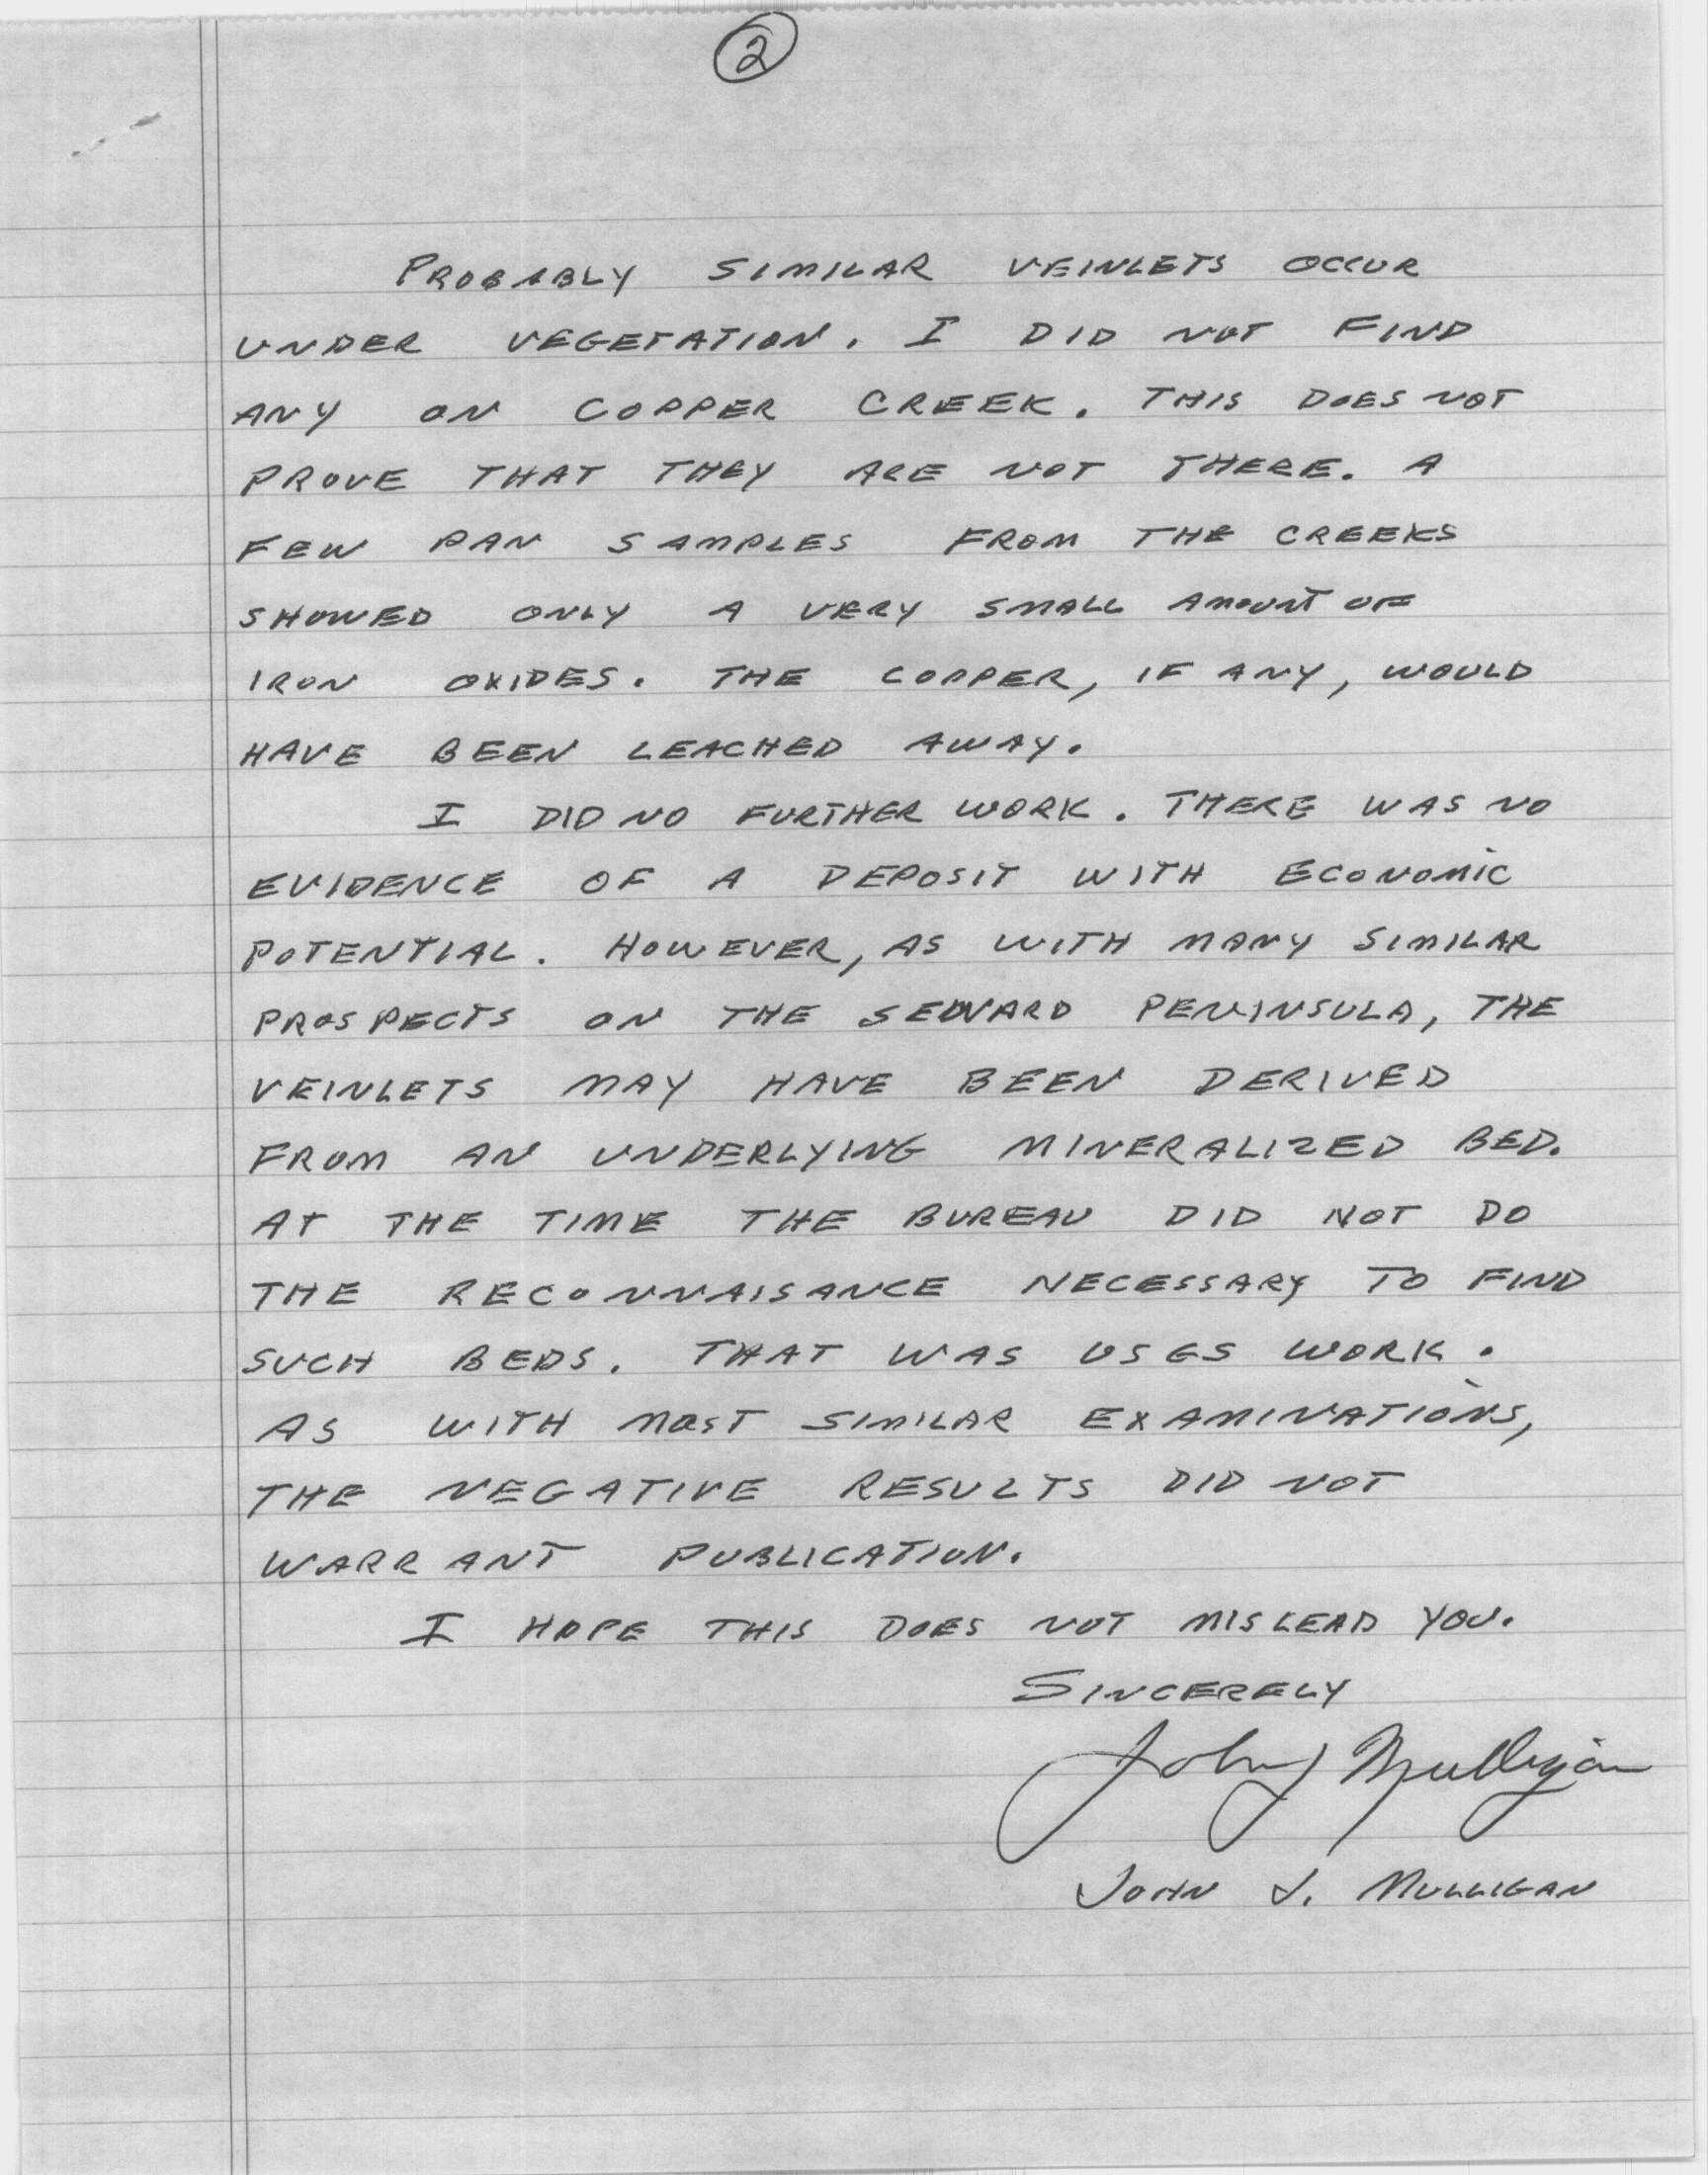 2
PROBABLY SIMILAR VEINLETS OCCUR
UNDER VEGETATION. I DID NOT FIND
ANY ON COPPER CREEK. THIS DOES NOT
PROVE THAT THEY ARE NOT THERE. A
FEW PAN SAMPLES FROM THE CREEKS
SHOWED ONLY A VERY SMALL AMOUNT OF
IRON OXIDES. THE COPPER, IF ANY, WOULD
HAVE BEEN LEACHED AWAY.
I DID NO FURTHER WORK. THERE WAS NO
EVIDENCE OF A DEPOSIT WITH ECONOMIC
POTENTIAL. HOWEVER, AS WITH MANY SIMILAR
PROSPECTS ON THE SEWARD PENINSULA, THE
VEINLETS MAY HAVE BEEN DERIVED
FROM AN UNDERLYING MINERALIZED BED.
AT THE TIME THE BUREAU DID NOT DO
THE RECONNAISANCE NECESSARY TO FIND
SUCH BEDS. THAT WAS USGS WORK.
AS WITH MOST SIMILAR EXAMINATIONS,
THE NEGATIVE RESULTS DID NOT
WARRANT PUBLICATION.
I HOPE THIS DOES NOT MISLEAD YOU.
SINCERELY
John J Mulligan
JOHN J. MULLIGAN